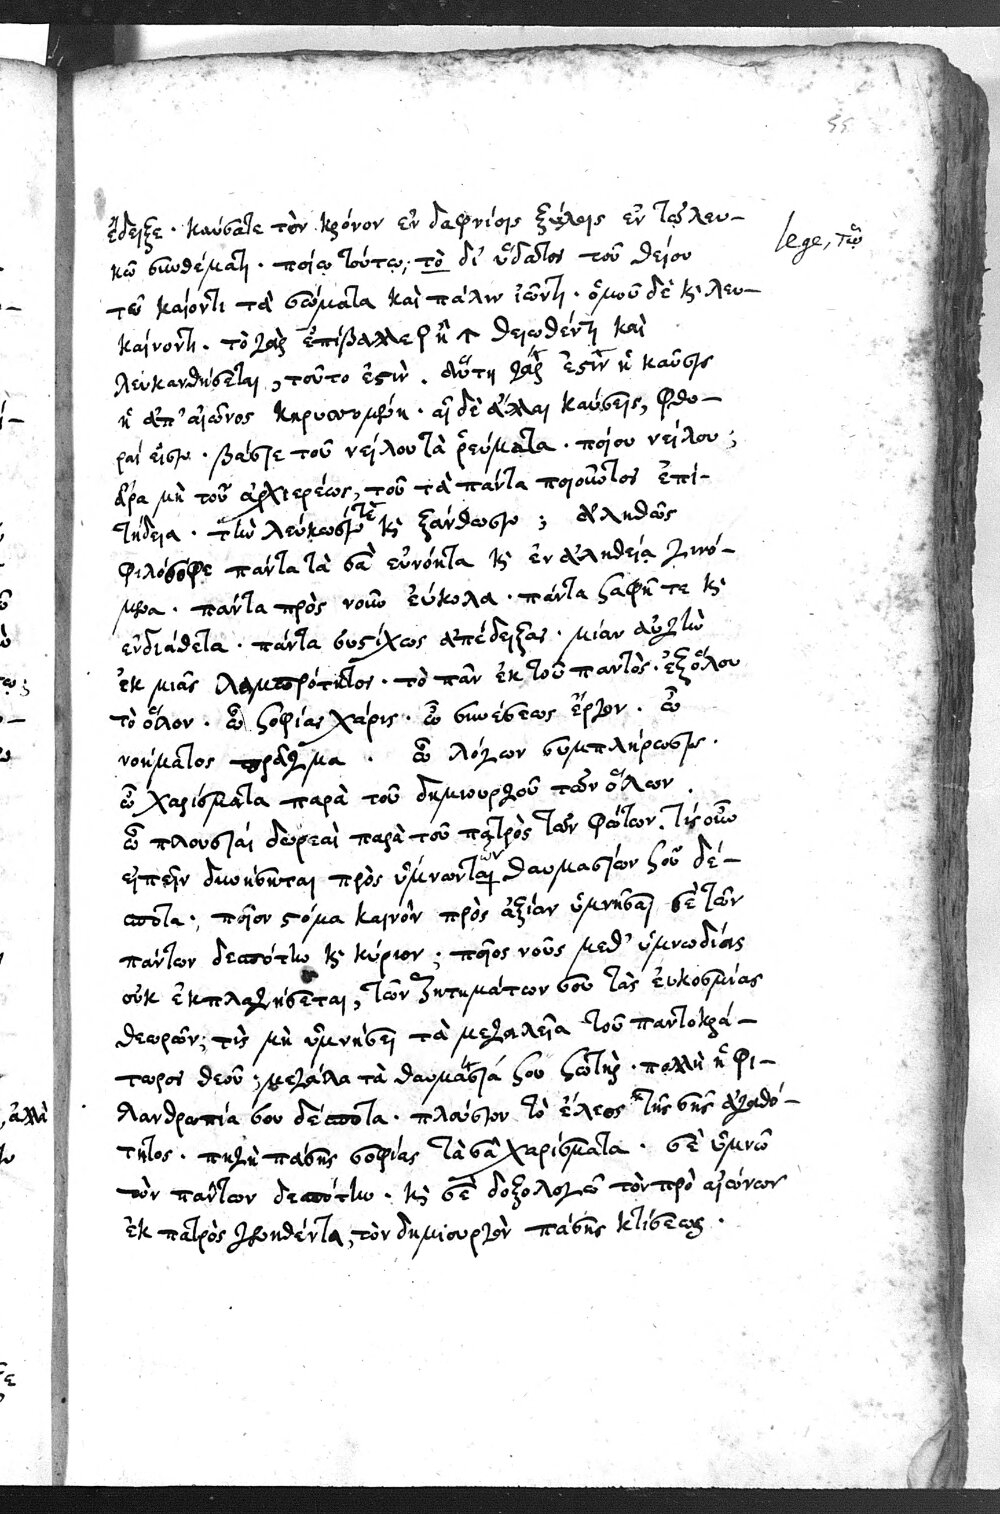 55
ἔδειξε · καύσατε τὸν κρόνον ἐν δαφνίοις ξύλοις ἐν τῷ λευ-
lege, τῶ
κῶ συνθέματι · ποίω τούτω; τὸ δι' ὕδατος τοῦ θείου
τῶ καίοντι τὰ σώματα καὶ πάλιν ἰῶντι · ὁμοῦ δὲ κ λευ-
καίνοντι · τὸ γὰρ θειωθέντι καὶ
λευκανθήσεται, τοῦτο ἐστὶν · αὕτη γάρ ἐστιν ἡ καῦσις
ἡ ἀπ' αἰῶνος κηρυττομένη · αἱ δὲ ἄλλαι καύσεις, φθο-
ραί εἰσιν · βάστε τοῦ νείλου τὰ ῥεύματα · ποίου νείλου;
ἆρα μὴ τοῦ ἀρχιερέως, τοῦ τὰ πάντα ποιοῦντος ἐπι-
τήδεια · τὴν λεύκωσίν τε κ ξάνθωσιν; ἀληθῶς
φιλόσοφε πάντα τὰ σὰ εὐνόητα κ ἐν ἀληθεία γινό-
μενα · πάντα πρὸς νοῦν εὔκολα · πάντα σαφῆ τε κ
ἐνδιάθετα · πάντα συστίχως ἀπέδειξας · μίαν αὐγὴν
ἐκ μιᾶς λαμπρότητος · τὸ πᾶν ἐκ τοῦ παντὸς · ἐξ ὅλου
τὸ ὅλον · ὦ σοφίας χάρις · ὦ συνέσεως ἔργον · ὦ
νοήματος πρᾶγμα · ὦ λόγων συμπλήρωσις ·
ὦ χαρίσματα παρὰ τοῦ δημιουργοῦ τῶν ὅλων ·
ὦ πλουσίαι δωρεαὶ παρὰ τοῦ πατρὸς τῶν φώτων · τίς οὖν
εἰπεῖν δυνήσηται πρὸς ὕμνων τῶν θαυμασίων σοῦ δέ-
σποτα; ποῖον στόμα καινὸν πρὸς ἀξίαν ὑμνῆσαι σὲ τῶν
πάντων δεσπότην κ κύριον; ποῖος νοῦς μεθ' ὑμνωδίας
οὐκ ἐκπλαγήσεται, τῶν ζητημάτων σου τὰς εὐκοσμίας
θεωρῶν; τίς μὴ ὑμνήσει τὰ μεγαλεῖα τοῦ παντοκρά-
τορος θεοῦ; μεγάλα τὰ θαυμάσιά σου σωτὴρ · πολλὴ ἡ φι-
λανθρωπία σου δέσποτα · πλούσιον τὸ ἔλεος τῆς σῆς ἀγαθό-
τητος · πηγὴ πάσης σοφίας τὰ σὰ χαρίσματα · σὲ ὑμνῶ
τὸν πάντων δεσπότην · κ σὲ δοξολογῶ τὸν πρὸ αἰώνων
ἐκ πατρὸς γεννηθέντα, τὸν δημιουργὸν πάσης κτίσεως ·